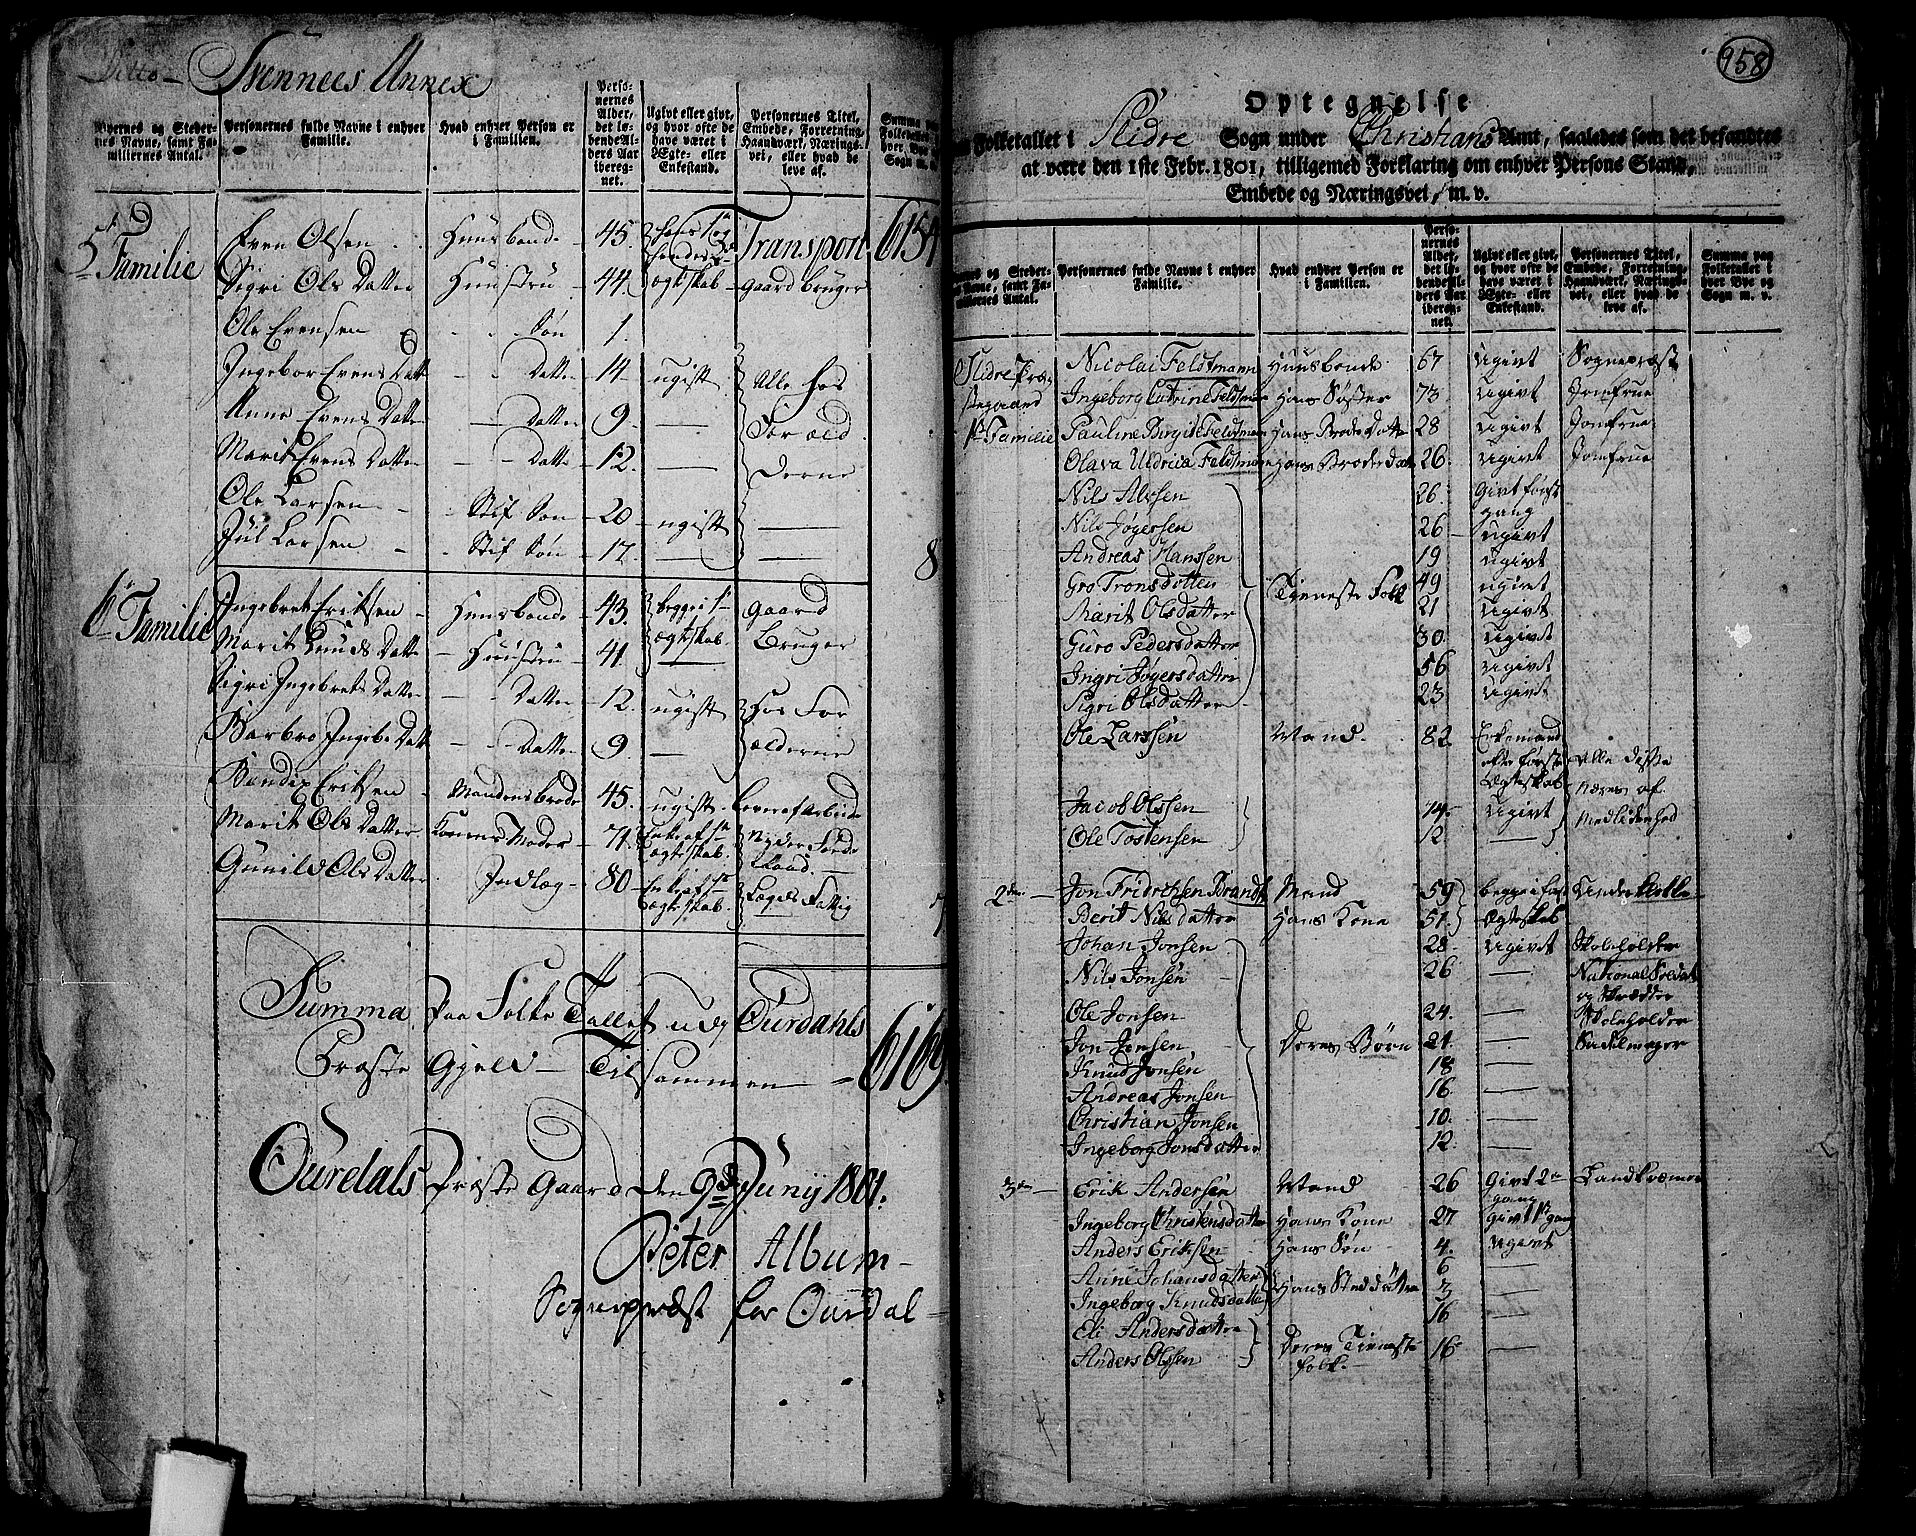 Ditto – Svennees Annex
Byernes og Steder-nes Navne, samt Fa-miliernes Antal. Personernes fulde Navne i enhver Familie. Hvad enhver Person er i Familien. Perso-nernes Alder, det lø-bende Al-ders Aar iberegnet. Ugivt eller givt, og hvor ofte de have været i Ægte- eller Enkestand. Personernes Titel, Embede, Forretning, Haandværk, Nærings-vei, eller hvad de leve af. Summa paa Folketallet
Transport 6154
5te Familie Even Olsen Huusbonde 45.
Sigri Ols Datter Huustru 44. ægteskab gaard bruger
Ole Evensen Søn 1.
Ingebor Evens Datt Datter 14 ugift Alle hos
Anne Evens Datter Datter 9. — For æld
Marit Evens Datter Datter 12. — derne
Ole Larsen Stif Søn 20 ugift —
Jul Larsen Stif Søn 17. — — 8
6te Familie Ingebret Eriksen Huusbonde 43. begge i 1te gaard
Marit Knuds Datter Huustru 41. ægteskab. Bruger
Sigri Ingebrets Datter Datter 12. ugift Hos For
Barbro Ingebr Datt Datter 9. — ælderne
Bendix Eriksen Mandens broder 45. ugift
Marit Ols Datter Konens Moder 71. Enke af 1te ægteskab.
Gunild Ols Datter Indlæg 80 Enke af 1te ægteskab. Lægds Fattig 7
Summa paa Folke Tallet udj Ourdahls
Præste Gjeld – Tilsammen – 6169
Ourdals Præste Gaard den 9de Junij 1801.
Peter Album
Sognepræst for Ourdal
958
Optegnelse
Folketallet i Slidre Sogn under Christians Amt, saaledes som det befandtes
at være den 1ste Febr. 1801, tilligemed Forklaring om enhver Persons Stand,
Embede og Næringsvei, m. v.
Personernes fulde Navne i enhver Familie. Hvad enhver Person er i Familien. Perso-nernes Alder, det lø-bende Al-ders Aar iberegnet. Ugivt eller givt, og hvor ofte de have været i Ægte- eller Enkestand. Personernes Titel, Embede, Forretning, Haandværk, Nærings-vei, eller hvad de leve af. Summa paa Folketallet i hver Bye og Sogn m. v.
Slidre Præ- Nicolai Feldtmann Huusbonde 67 Ugivt Sognepræst
stegaard Ingeborg Catrine Feldtmann Hans Søster 73 Ugivt Jomfrue
1te Familie Pauline Birgite Feldtmann Hans Broder Datter 28 Ugivt Jomfrue
Olava Uldrica Feldtmann Hans Broder Datter 26 Ugivt Jomfrue
Nils Alfsen 26 Givt første gang
Nils Jøgersen 26 Ugivt
Andreas Hanssen 19 Ugivt
Gro Tronsdotten Tieneste Folk 49 Ugivt
Marit Olsdatter 21 Ugivt
Guro Pedersdatter 30. Ugivt
Ingri Jøgersdatter 56 Ugivt
Sigri Olsdatter 23 Ugivt
Ole Larssen Mand 82 Enkemand efter første Ægteskab Alle disse
Jacob Olssen 74 Ugivt Næres af
Ole Tostensen 12 — Medlidenhed
2den — Jon Fridrichsen Brandt Mand 59 begge i første
Berit Nilsdatter Hans Kone 51 Ægteskab
Johan Jonsen 28 Ugivt Skoleholder
Nils Jonsen 26 — National Soldat og Skrædder
Ole Jonsen 24. — Skoleholder
Jon Jonsen Deres Børn 21. — Sadelmager
Knud Jonsen 18 —
Andreas Jonsen 16 —
Christian Jonsen 10. —
Ingeborg Jonsdatter 12. —
3die — Erik Andersen Mand 26 Givt 2den gang Landkræmmer
Ingeborg Christensdatter Hans Kone 27 Givt 1te gang
Anders Eriksen Hans Søn 4. Ugivt
Anne Johansdatter Hans Steddøttre 6 —
Ingeborg Knudsdatter 3 —
Eli Andersdatter Deres Tieneste 16
Anders Olssen folk 16 —